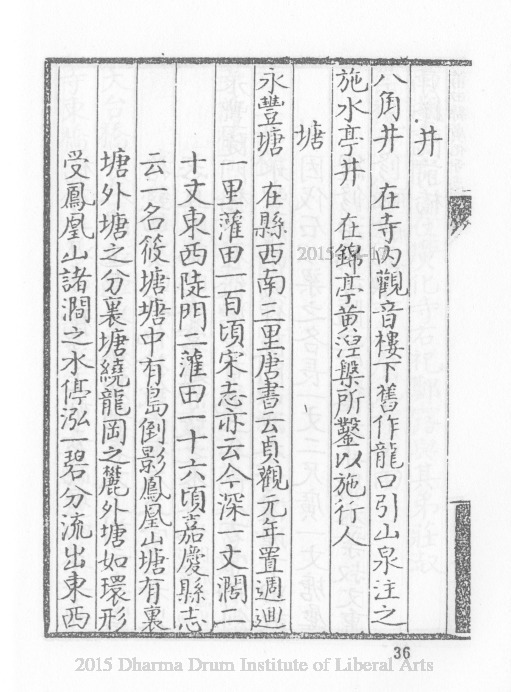 井
八角井 在寺內觀音樓下舊作龍口引山泉注之
施水亭井 在錦亭黃涅槃所鑿以施行人
塘
永豐塘 在縣西南三里唐書云貞觀元年置週廻
一里灌田一百頃宋志亦云今深一丈濶二
十丈東西陡門二灌田一十六頃嘉慶縣志
云一名筱塘塘中有島倒影鳳凰山塘有裏
塘外塘之分裏塘繞龍岡之麓外塘如環形
受鳳凰山諸澗之水停泓一碧分流出東西
36
2015 Dharma Drum Institute of Liberal Arts